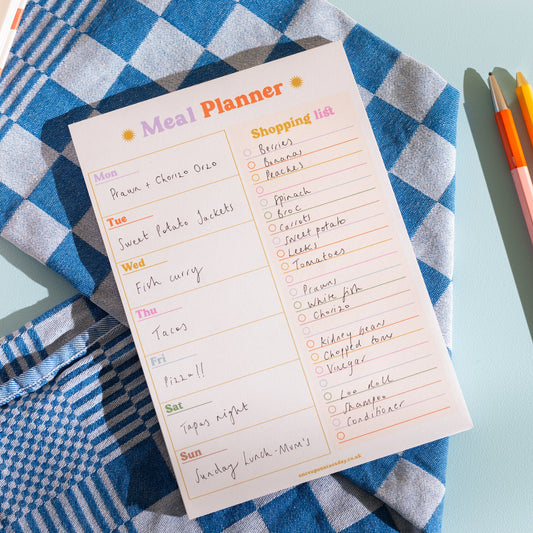 Meal Planner
Mon
Prawn + Chorizo Orzo
Tue
Sweet Potato Jackets
Wed
Fish curry
Thu
Tacos
Fri
Pizza!!
Sat
Tapas night
Sun
Sunday Lunch - Mum's
Shopping list
Berries
Bananas
Peaches
Spinach
Broc
Carrots
Sweet potato
Leeks
Tomatoes
Prawns
White fish
Chorizo
Kidney bean
Chopped tom
Vinegar
Loo Roll
Shampoo
Conditioner
onceuponatuesday.co.uk